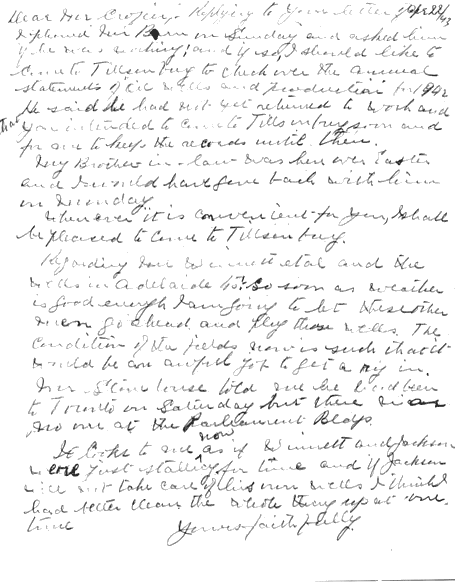 Dear Mr Crozier. Replying to your letter Apr 22/43
I phoned Mr on Sunday and asked him
if he was working; and if so, I should like to
come to Tillsonburg to check over the annual
statements of oil wells and production for 1942
He said he had not yet returned to work and
that you intended to come to Tillsonburg soon and
for me to keep the records until then.
My Brother in-law was here over Easter
and I would have gone back with him
on Monday.
Whenever it is convenient for you, I shall
be pleased to come to Tillsonburg.
Regarding Mr Winnett et al and the
wells in Adelaide So soon as weather
is good enough I am going to let these other
men go ahead and plug those wells. The
condition of the fields now is such that it
would be an awful job to get a rig in.
Mr Stonehouse told me he had been
to Toronto on Saturday but there was
no one at the Parliament Bldgs.
It looks to me now as if Winnett and Jackson
were just stalling for time and if Jackson
will not take care of his own wells I think I
had better clean the whole thing up at one
time
Yours faithfully.